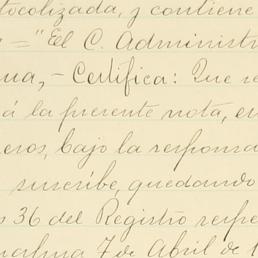 tocolizada, y contiene
="El C. Administr
ua,- Certifica: Que se
á la presente nota, en
eros, bajo la responsa
suscribe, quedando
s 36 del Registro respe
7 de Abril de 1